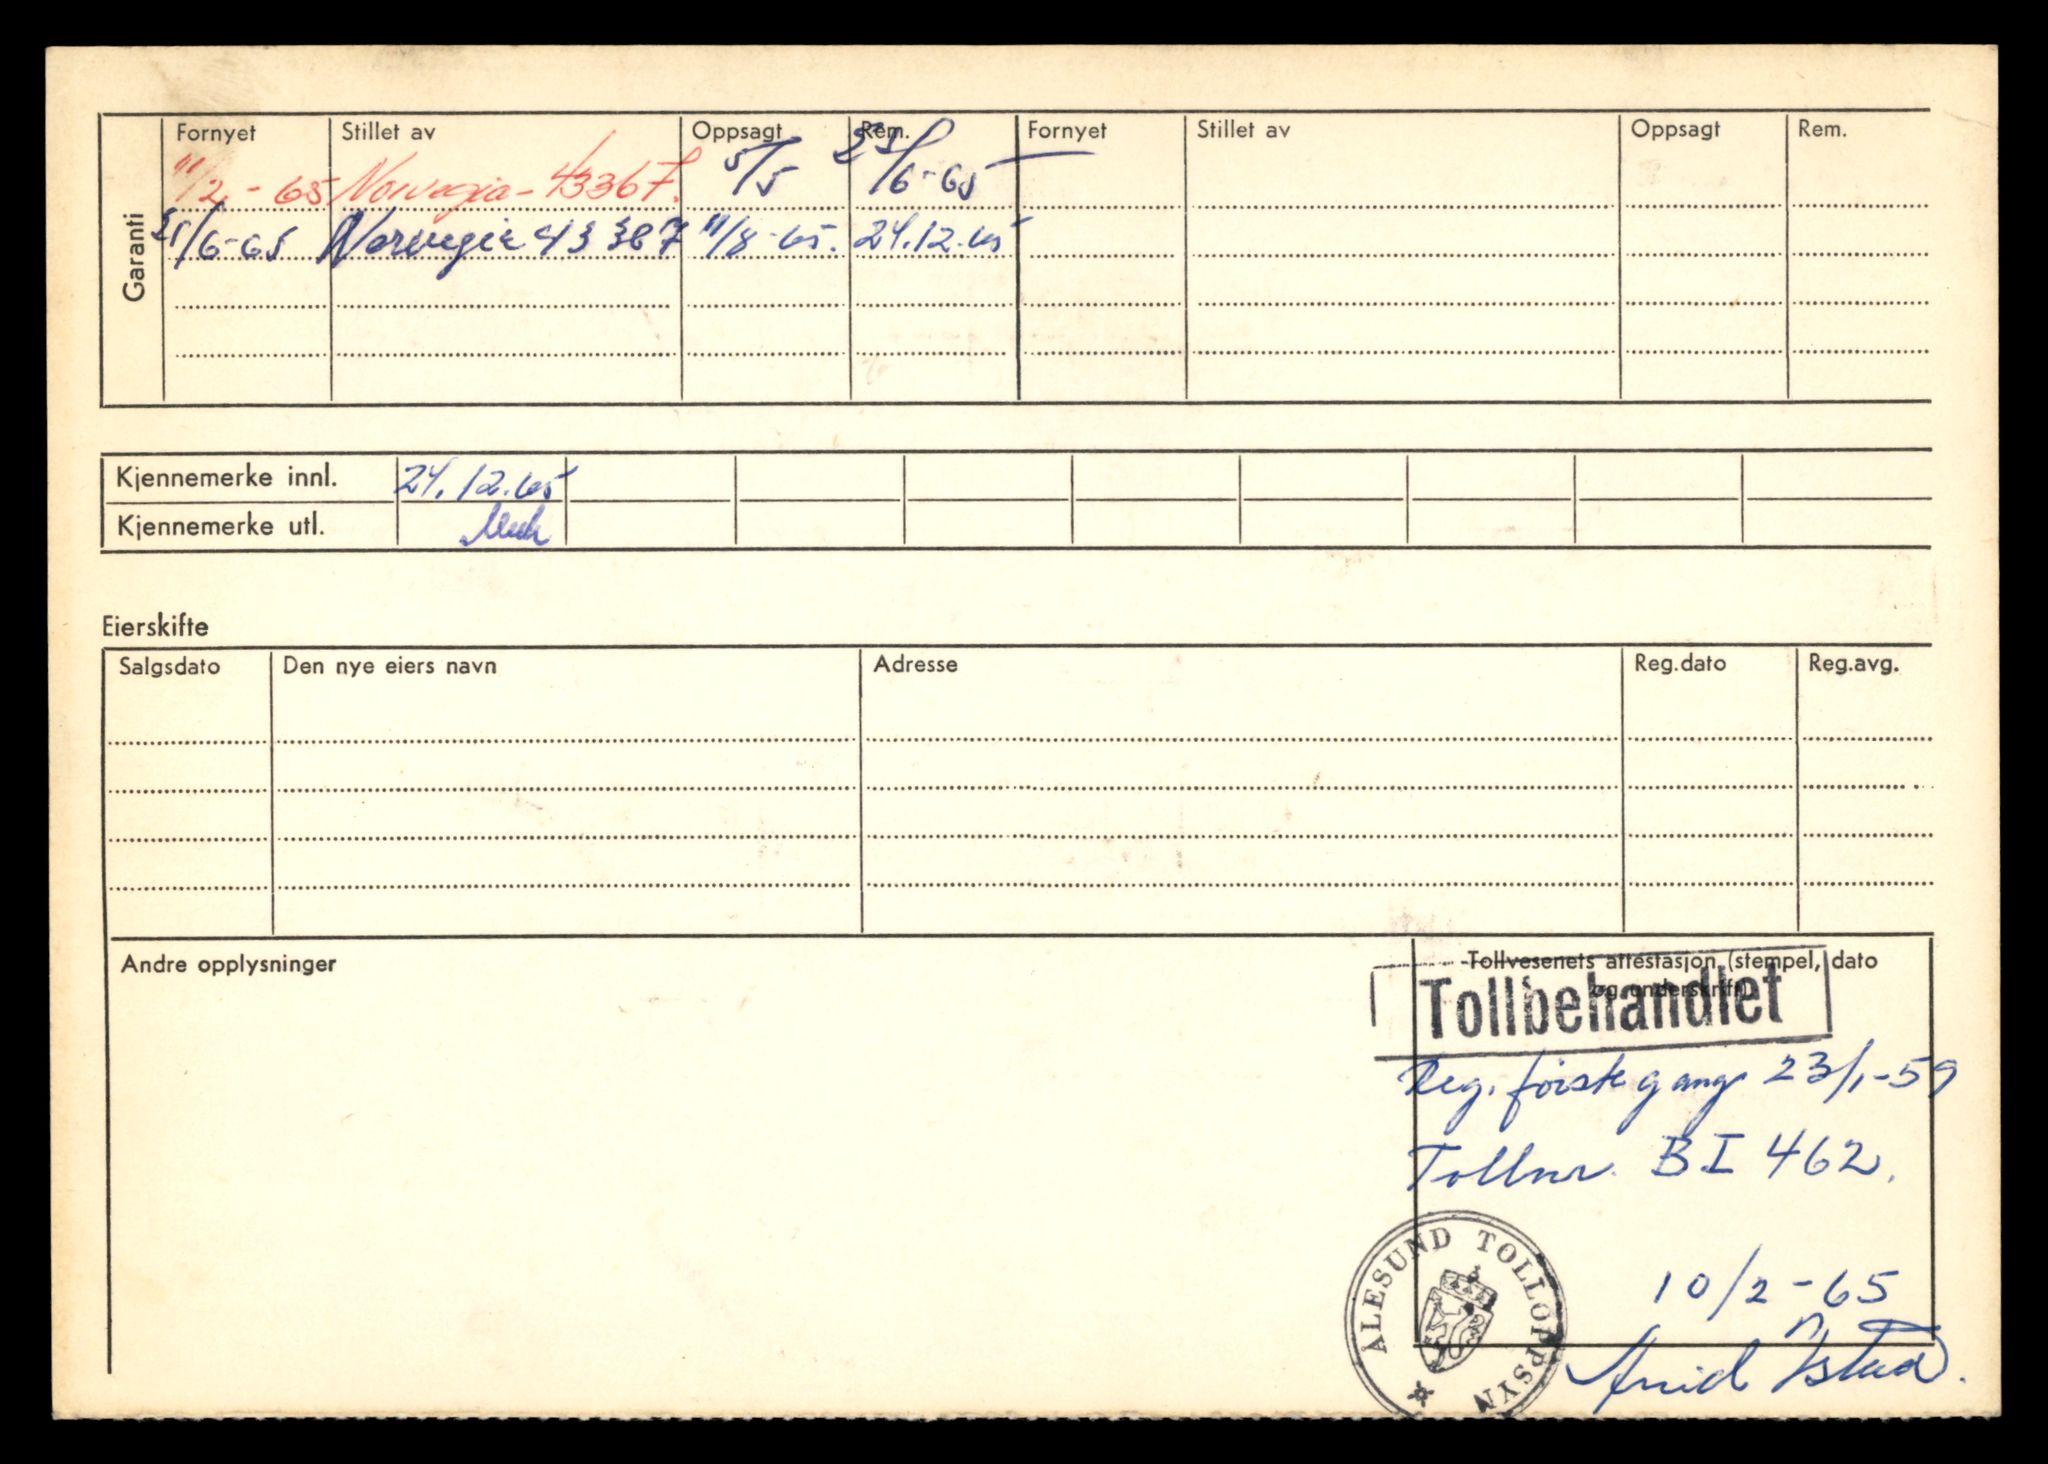 Garanti
Fornyet Stillet av Oppsagt Rem. Fornyet Stillet av Oppsagt Rem.
11/2 - 65 Norvegia - 43367. 5/5 23/6-65
/6-65 Norvegia 43367 11/8-65. 24.12.65
Kjennemerke innl. 24.12.65
Kjennemerke utl.
Eierskifte
Salgsdato Den nye eiers navn Adresse Reg.dato Reg.avg.
Andre opplysninger
Tollvesenets attestasjon (stempel, dato
og underskrift)
Tollbehandlet
Reg. første gang 23/1-59
Tollnr. BI 462.
ÅLESUND TOLLOPPSYN
10/2-65